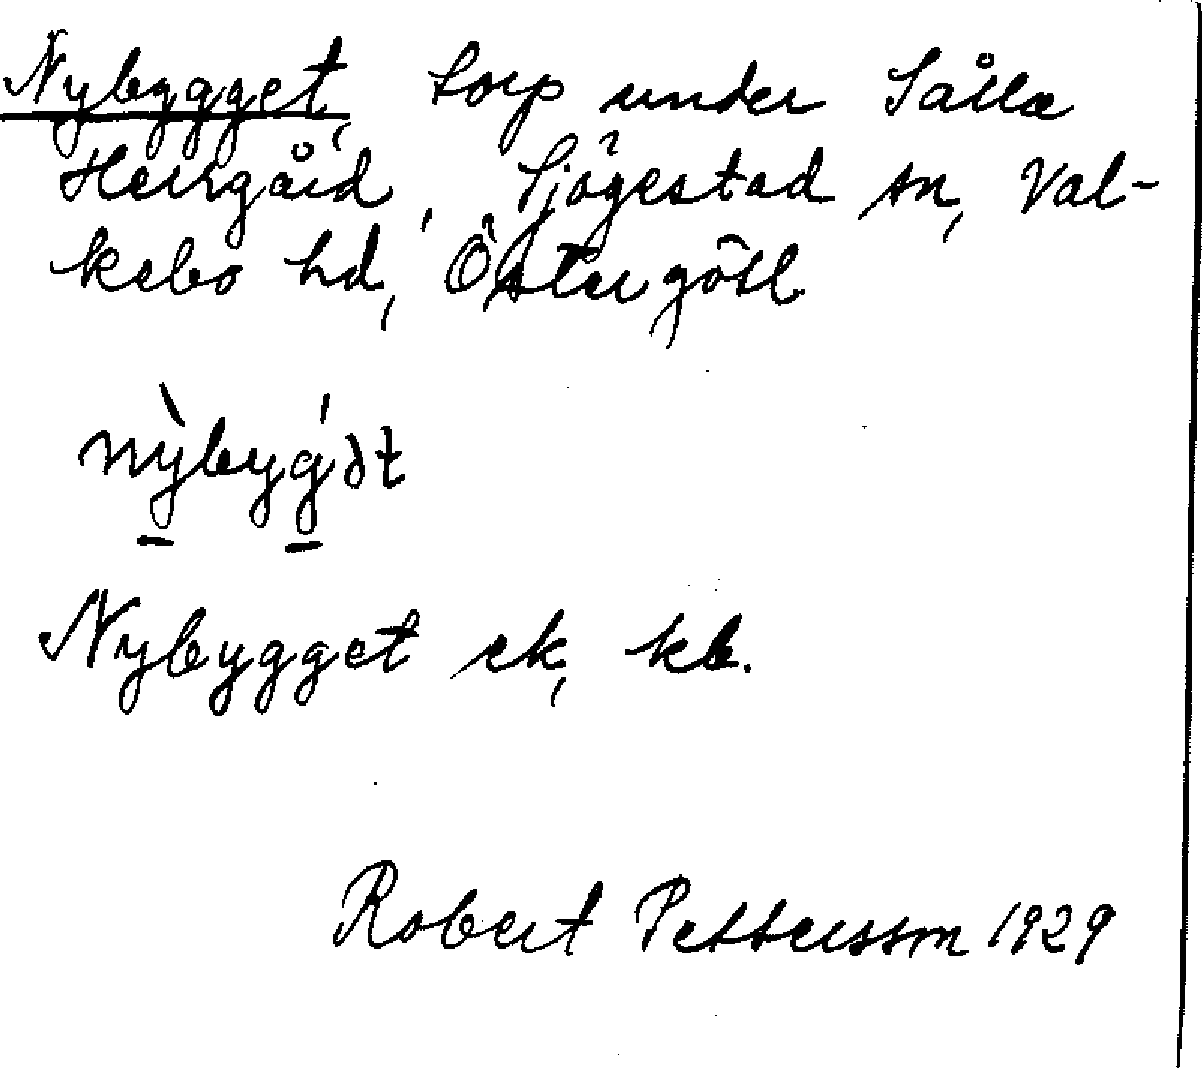 Nybygget, torp under Sålla
Herrgård, Sjögestad sn, Val-
kebo hd, Östergötl
nỳbyǵət
Nybygget ek, kb.
Robert Pettersson 1929